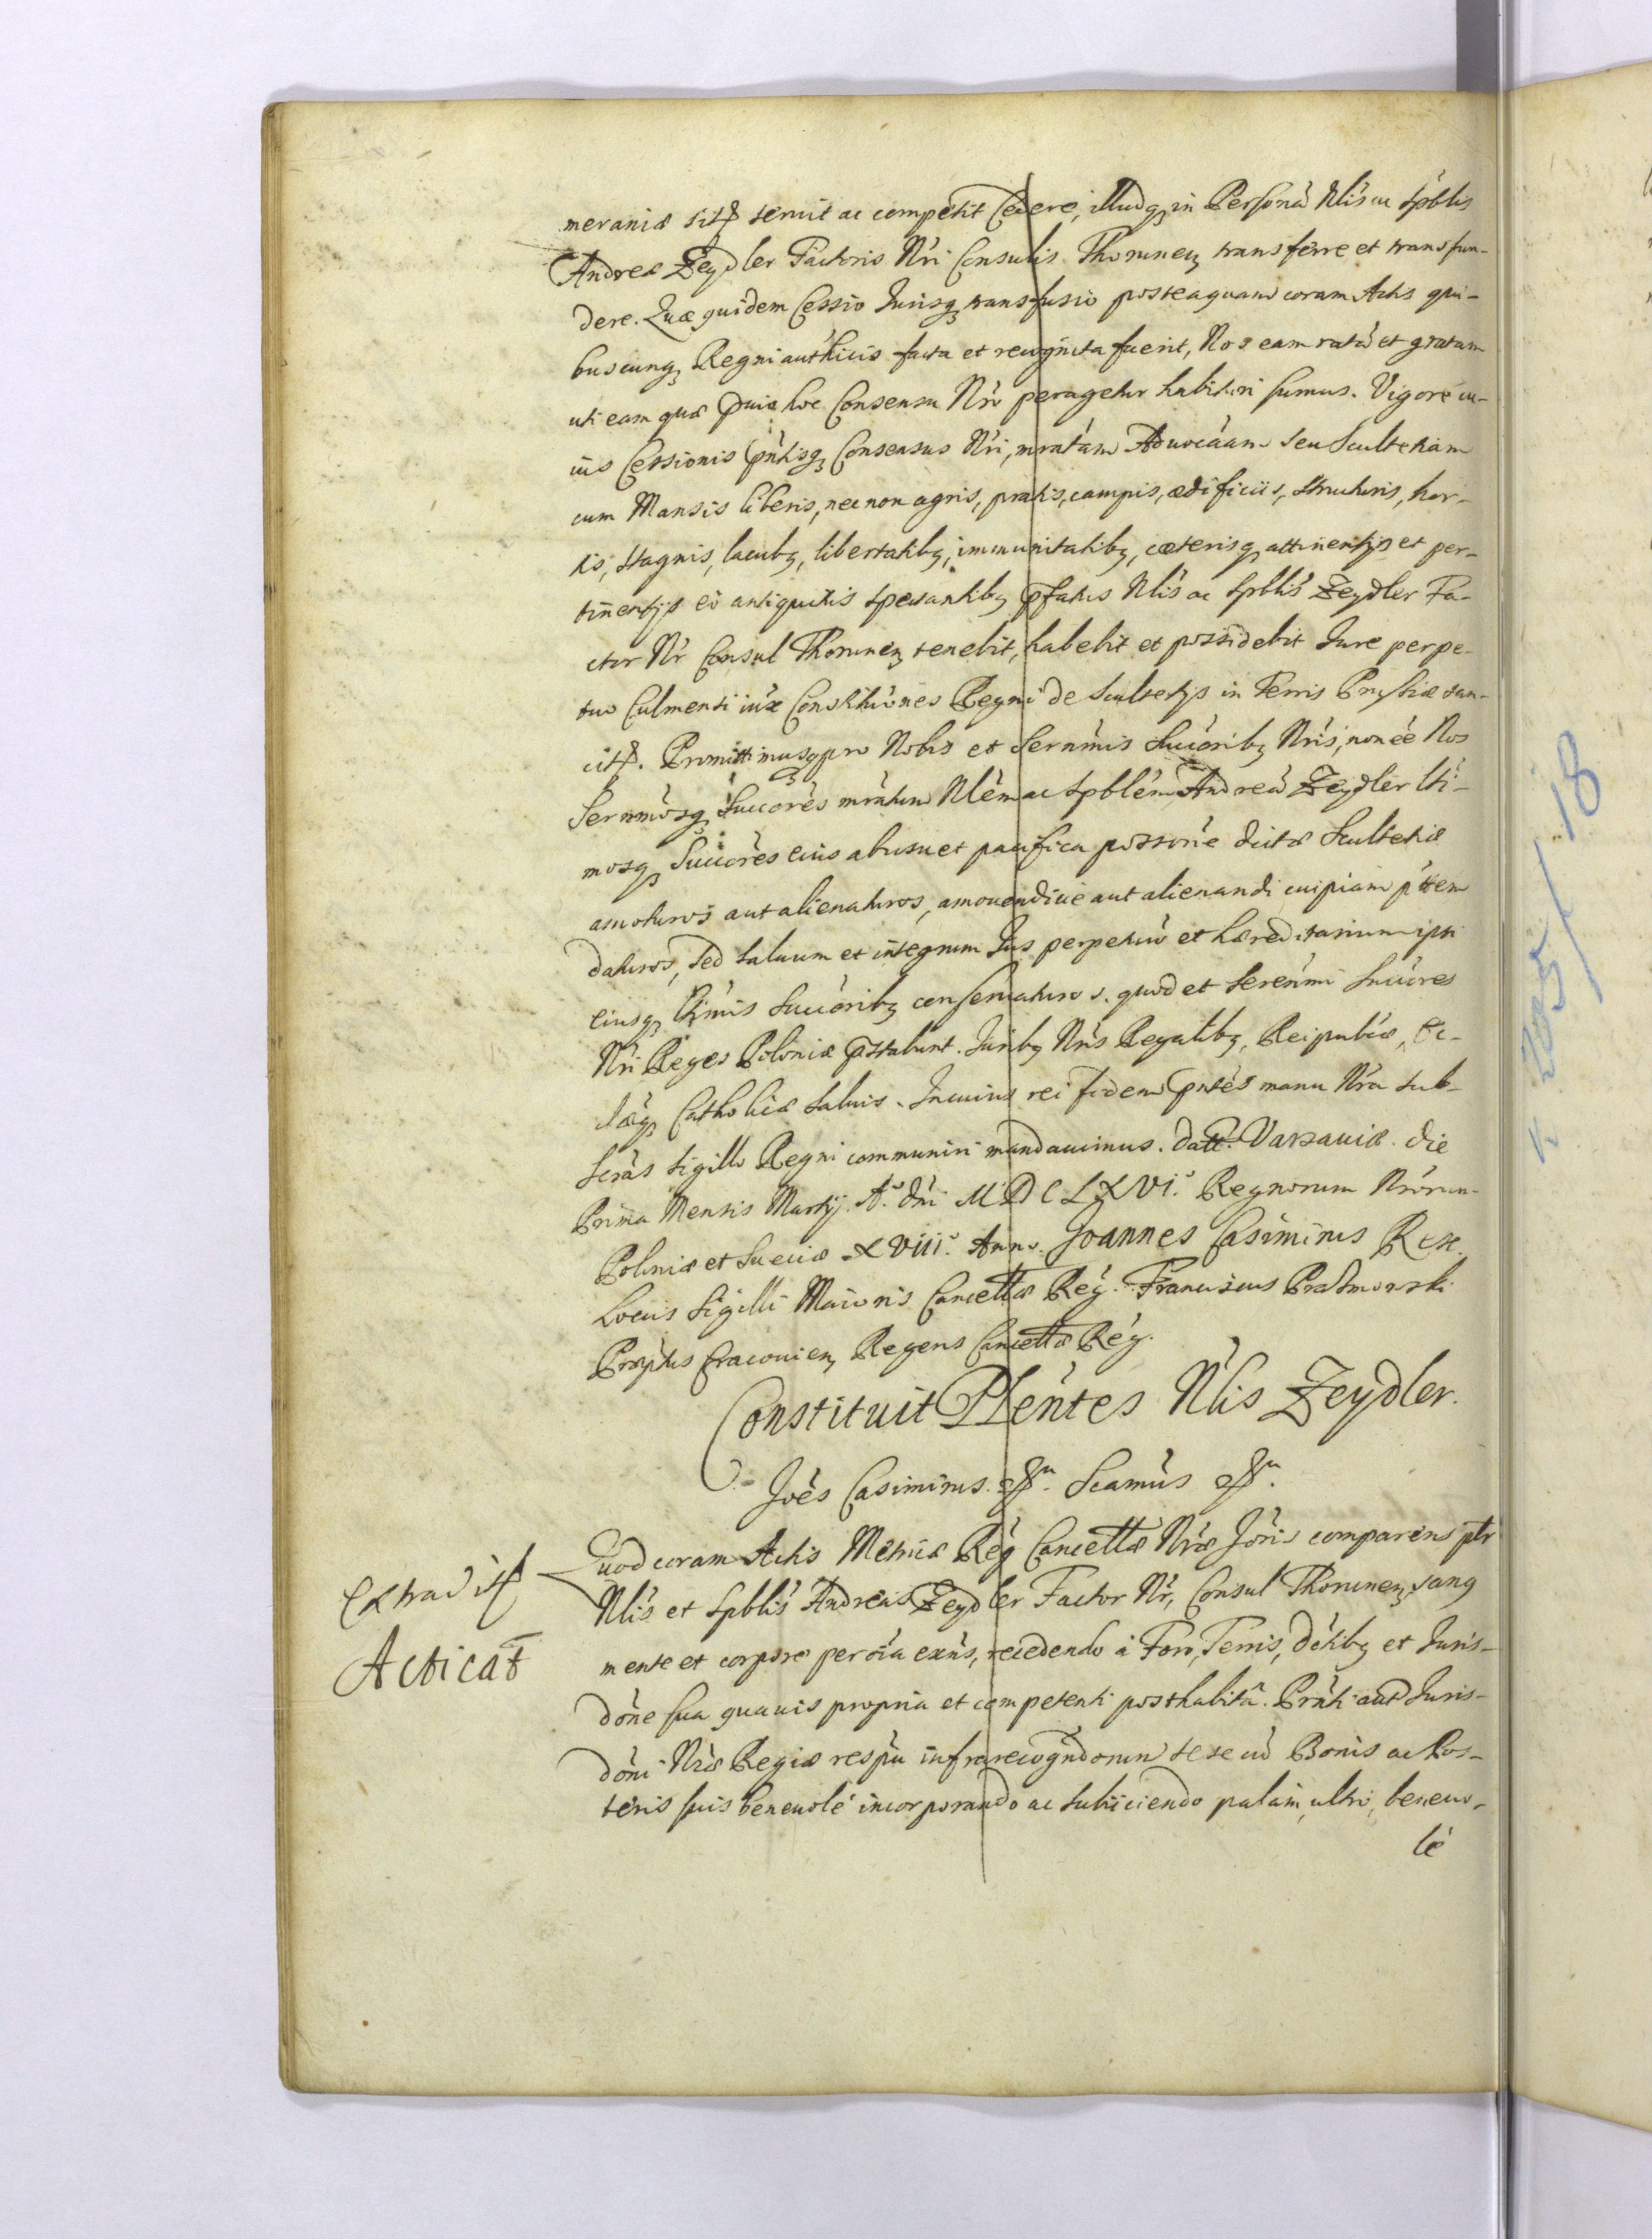 meraniæ sit seruit ac competit Cedere, illudq; in Personã Nlis ac Spblis
Andreæ Zeydler Factoris Nri Consulis Thorunen; transferre et transfun-
dere. Quæ quidem Cessio Jurisq; transfusio posteaquam coram Actis qui-
buscunq; Regni authicis facta et recognita fuerit, Nos eam ratã et gratam
uti eam quæ præuia hoc Consensu Nro peragetur habituri sumus. Vigore cu-
ius Cessionis pntisq; Consensus Nri, mratam Aduocaam seu Scultetiam
cum Mansis liberis, nec non agris, pratis, campis, ædificiis, structuris, hor-
tis, stagnis, lacub9, libertatib9, immunitatib9, cæterisq; attinentijs et per-
tinentijs eò antiquitis spectantib9 pfatus Nlis ac Spblis Zeydler Fa-
ctor Nr Consul Thorunen; tenebit, habebit et possidebit Jure perpe-
tuo Culmensi iux̃ Constitnes Regni de Scultetijs in Terris Prussiæ san-
cit. Promittimusq; pro Nobis et Sernmis Succorib9 Nris, non eẽ Nos
Sernmosq; Succores mratum Nlem ac Spblem Andreã Zeydler lti-
mosq; Succores eius ab usu et pacifica possone dictæ Scultetiæ
amoturos aut alienaturos, amouendiue aut alienandi cuipiam ptem
daturos, sed saluum et integrum Jus perpetuũ et hæreditarium ipsi
eiusq; ltimis Succorib9 conseruaturos. quod et Serenmi Succores
Nri Reges Poloniæ pstabunt. Jurib9 Nris Regalib9, Reipublæ, Ec-
clæq; Catholicæ saluis. In cuius rei fidem pntes manu Nra sub-
scras sigillo Regni communiri mandauimus. Datt. Varsauiæ. die
Prima Mensis Martij. A.º dni MDCLXVI.º Regnorum Nrorum
Poloniæ et Sueciæ XVIII.º Anno. Joannes Casimirus Rex.
Locus Sigilli Maioris Cancellæ Reg. Franciscus Prażmowski
Præptus Cracouien; Regens Cancellæ Reg.
Constituit Plentes Nlis Zeydler.
Joes Casimirus. &. Scamus &.
Extradit
Acticat
Quod coram Actis Metricæ Reg Cancellæ Nræ Joris comparens psltr
Nlis et Spblis Andreas Zeydler Factor Nr, Consul Thorunen; sanq
mente et corpore per oia exns, recedendo à Foro, Terris, Dctib9 et Juris-
done sua quauis propria et competenti posthabita. Prnti aut Juris-
doni Nræ Regiæ respu infrarecogndorum sese cũ Bonis ac Pos-
teris suis beneuole incorporando ac subiiciendo palam, ultro, beneuo-
le
18